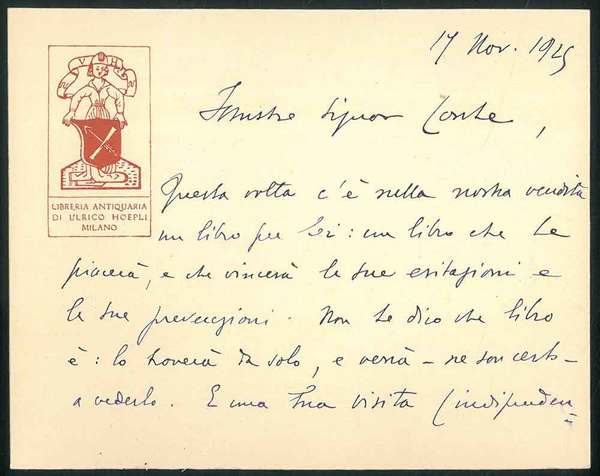 17 Nov. 1925
Illustre Signor Conte,
LIBRERIA ANTIQUARIA
DI ULRICO HOEPLI
MILANO
Questa volta c'è nella nostra vendita
un libro per Lei: un libro che Le
piacerà, e che vincerà le sue esitazioni e
le sue prevenzioni. Non Le dico che libro
è: lo troverà da solo, e verrà – ne son certo –
a vederlo. E una Sua visita (indipenden=